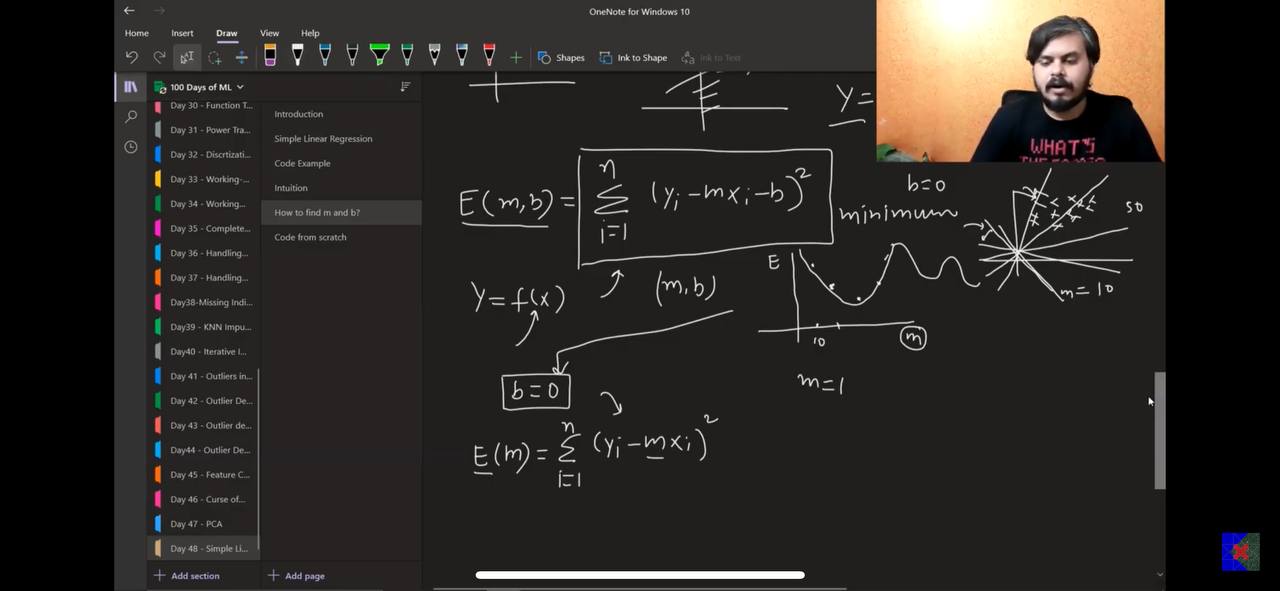 OneNote for Windows 10
Home Insert Draw View Help
Shapes Ink to Shape Ink to Text
100 Days of ML
Day 30 - Function T...
Day 31 - Power Tra...
Day 32 - Discrtizati...
Day 33 - Working-...
Day 34 - Working...
Day 35 - Complete...
Day 36 - Handling...
Day 37 - Handling...
Day38-Missing Indi...
Day39 - KNN Impu...
Day40 - Iterative I...
Day 41 - Outliers in...
Day 42 - Outlier De...
Day 43 - Outlier de...
Day44 - Outlier De...
Day 45 - Feature C...
Day 46 - Curse of...
Day 47 - PCA
Day 48 - Simple Li...
Add section
Introduction
Simple Linear Regression
Code Example
Intuition
How to find m and b?
Code from scratch
Add page
Y=
WHAT'S
E(m,b) = n∑i=1 (yi - mxi - b)²
b=0
minimum
50
E
m = 10
Y = f(x)
(m,b)
10
m
b = 0
m=1
E(m) = n∑i=1 (yi - mxi)²